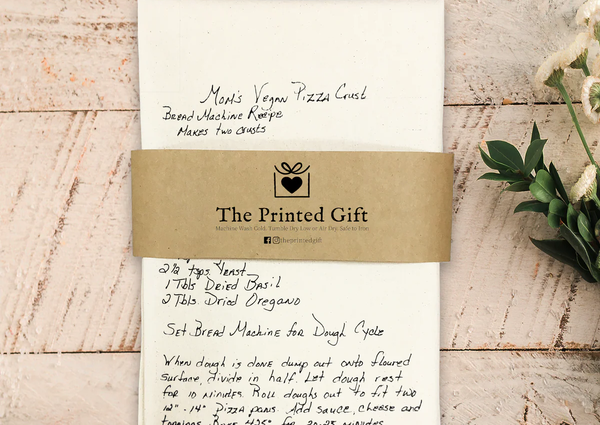 Mom's Vegan Pizza Crust
Bread Machine Recipe
Makes two crusts
The Printed Gift
Machine Wash Cold. Tumble Dry Low or Air Dry. Safe to Iron.
theprintedgift
2 1/2 tsps. Yeast
1 Tbls Dried Basil
2 Tbls. Dried Oregano
Set Bread Machine for Dough Cycle
When dough is done dump out onto floured
surface, divide in half. Let dough rest
for 10 minutes. Roll doughs out to fit two
12" - 14" Pizza pans. Add sauce, cheese and
toppings. Bake 425° for 20-25 minutes